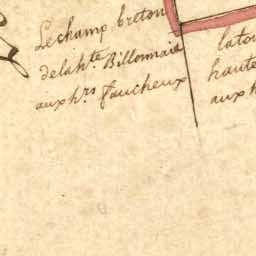 Le champ breton
de la h.te Billonnais
aux h.rs faucheux
latou
haute
aux h